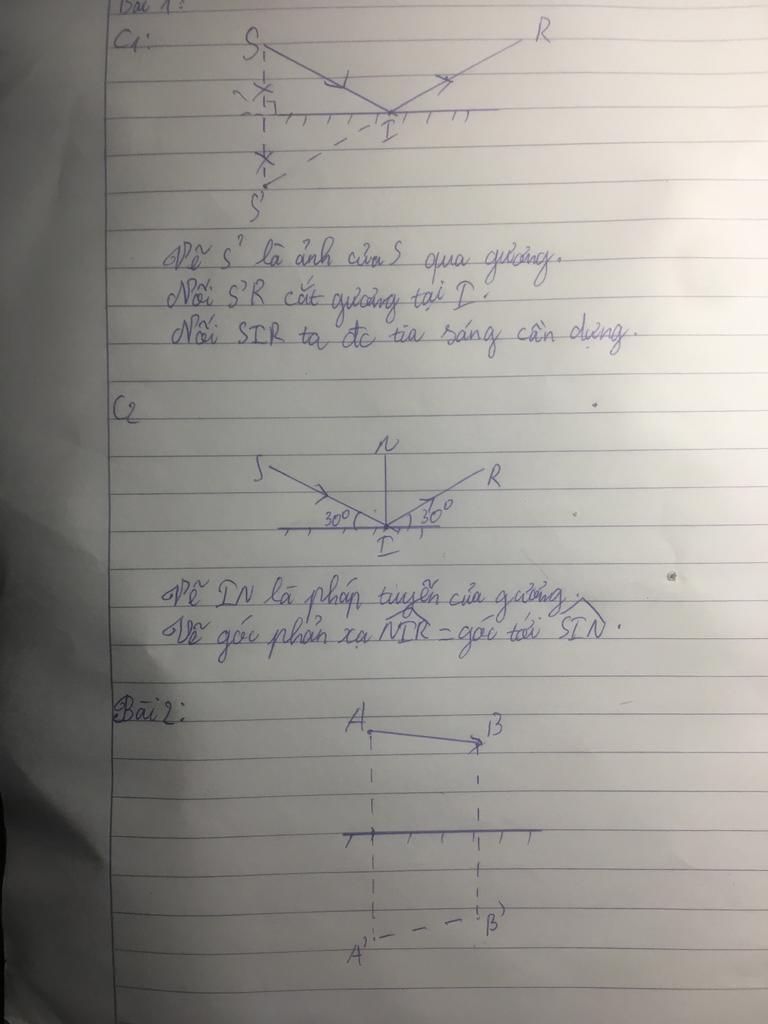 Bài 1:
C1:
S
R
I
S'
Vẽ S' là ảnh của S qua gương.
Nối S'R cắt gương tại I.
Nối SIR ta đc tia sáng cần dựng.
C2
N
S
R
30°
30°
I
Vẽ IN là pháp tuyến của gương.
Vẽ góc phản xạ NIR = góc tới SIN.
Bài 2:
A
B
B'
A'